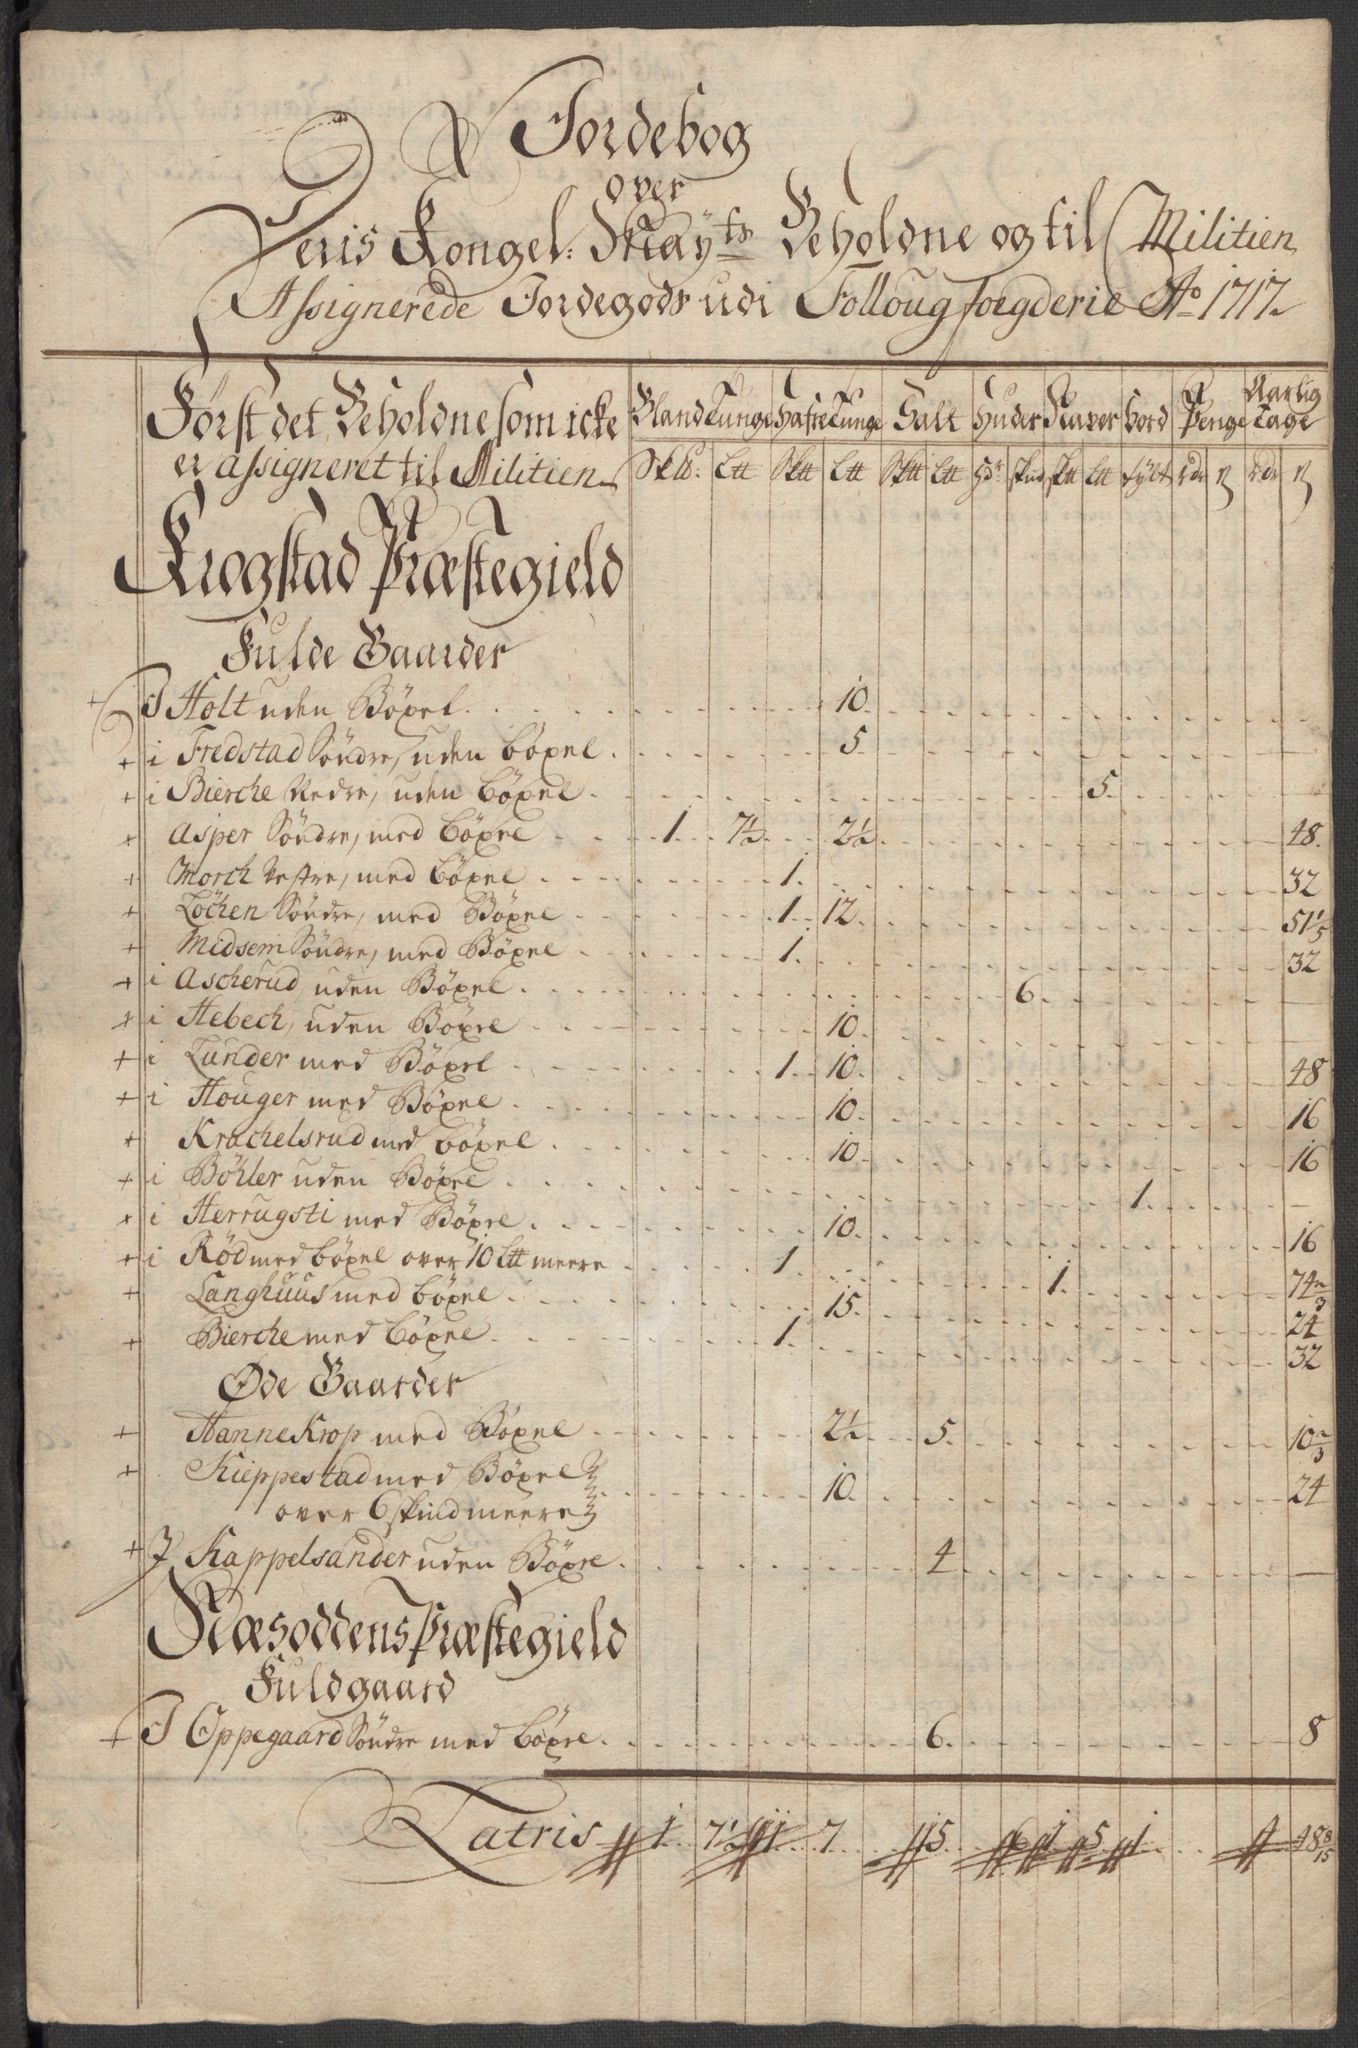 Jordebog
over
Deris Kongel: Mayts Beholdne og til Militien
Assignerede Jordegods udi Folloug foegderie Ao 1717.
Først det Beholdne som icke er assigneret til Militien | Bland Tunge | Hafre Tunge | Salt | Huder | Skaver | Bord | Penge | Aarlig Tage
Sk℔: | L℔ | Sk℔ | L℔ | Sk℔ | L℔ | Hdr | skind | Sk℔ | L℔ | tylt | rdr | ß | rdr | ß
Krogstad Præstegield
Fulde Gaarder
+ J Holt uden Böxel . . 10.
+ i Fredstad Söndre, uden böxel . . 5
+ i Bierche Nedre, uden böxel . . 5.
+ Asper Söndre, med böxel . . 1 . . 7½ . . 2½ . . 48.
+ Morch Vestre, med böxel . . 1. . . 32
+ Löchen Söndre, med Böxel . . 1 . . 12 . . 51 1/5
+ Midsem Söndre, med Böxel . . 1. . . 32
+ i Ascherud, uden Böxel . . 6.
+ i Hebech, uden Böxel . . 10.
+ i Lunder med Böxel . . 1 . . 10. . . 48
+ i Houger med Böxel . . 10. . . 16
+ Krachelsrud med böxel . . 10. . . 16
+ i Böhler uden Böxel . . 1.
+ i Herrugsti med Böxel . . 10. . . 16
+ i Röd med böxel over 10 L℔ meere . . 1 . . 1. . . 74 2/3
+ Langhuus med böxel . . 15. . . 24
+ Bierche med böxel . . 1. . . 32
Øde Gaarder
+ Hannekrop med Böxel . . 2½ . . 5. . . 10 2/3
+ Kieppestad med Böxel
over 6 skind meere . . 10. . . 24
+ J Kappelsander uden Böxel . . 4
Næsoddens Præstegield
Fuldgaard
+ J Oppegaard Söndre med böxel . . 6. . . 8
Latris 1 . . 7½ 11 . . 7 15. 6 1 5 1 4 48 8/15